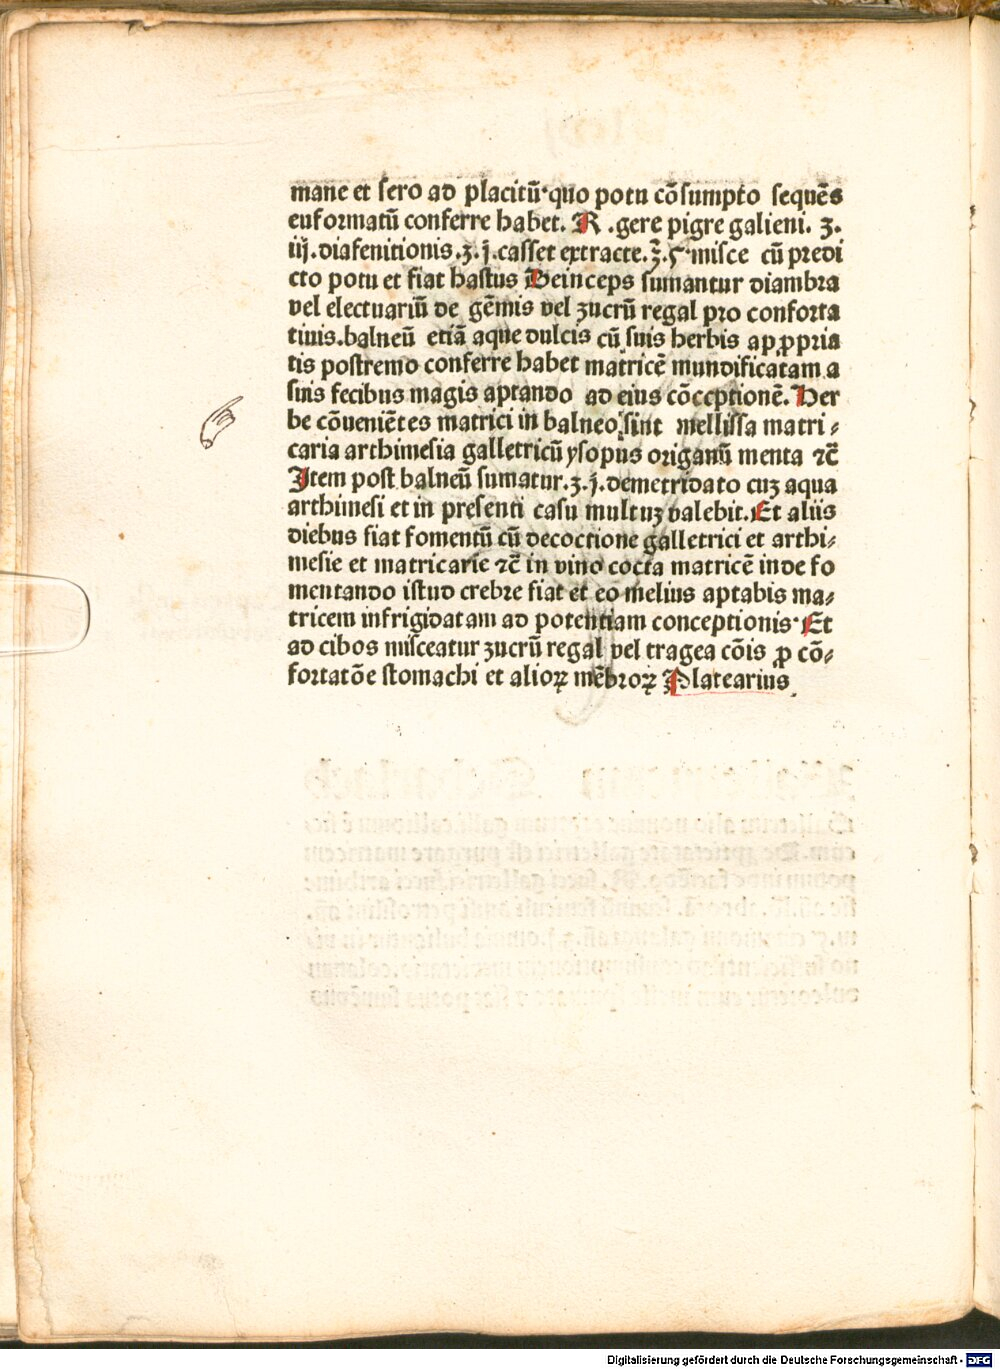 mane et sero ad placitū·quo potu cōsumpto sequēs
euformatū conferre habet. R .gere pigre galieni. ʒ.
iij.diafenitionis.ʒ.j.casset extracte.ʒ̄.ς·misce cū predi
cto potu et fiat hastus Deinceps sumantur diambra
vel electuariū de gēmis vel zucrū regal pro conforta
tiuis.balneū etiā aque dulcis cū suis herbis ap ꝓpria
tis postremo conferre habet matricē mundificatam a
suis fecibus magis aptando ad eius cōceptionē. Her
be cōueniētes matrici in balneo sint mellissa matri⸗
caria arthimesia galletricū ysopus origanū menta ⁊c̄
Item post balneū sumatur.ʒ.j.demetridato cuz aqua
arthimesi et in presenti casu multuz valebit.Et aliis
diebus fiat fomentū cū decoctione galletrici et arthi⸗
mesie et matricarie ⁊c̄ in vino cocta matricē inde fo
mentando istud crebre fiat et eo melius aptabis ma⸗
tricem infrigidatam ad potentiam conceptionis·Et
ad cibos misceatur zucrū regal vel tragea cōis ꝓ cō⸗
fortatōe stomachi et alioꝝ mēbroꝝ Platearius.
Digitalisierung gefördert durch die Deutsche Forschungsgemeinschaft - DFG